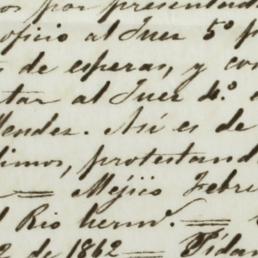 os por presentad
oficio al Juez 5º p
s de esperas, y con
tar al Juez 4º.
Mendez. Así es de
dimos, protestand
Méjico Febre
l Rio herm.
2 de 1862 = Pídan